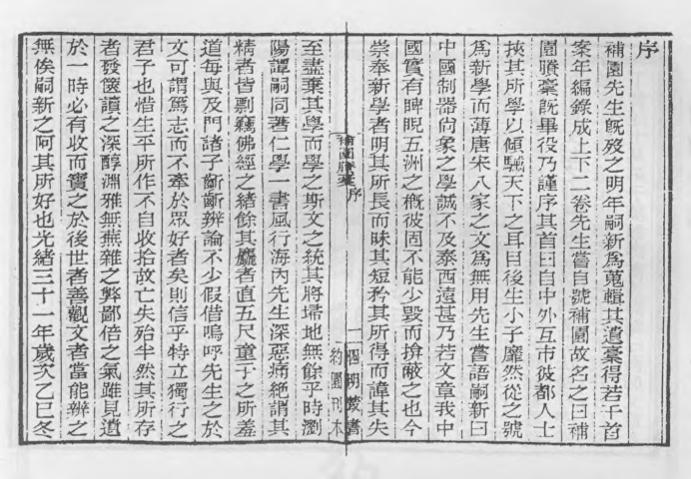 序
補園先生旣歿之明年嗣新爲蒐輯其遺稾得若干首
案年編錄成上下二卷先生嘗自號補園故名之曰補
園賸稾旣畢役乃謹序其首曰自中外互市彼都人士
挾其所學以傾駴天下之耳目後生小子靡然從之號
爲新學而薄唐宋八家之文爲無用先生嘗語嗣新曰
中國制器尙象之學誠不及泰西遠甚乃若文章我中
國實有睥睨五洲之槪彼固不能少毀而揜蔽之也今
崇奉新學者明其所長而昧其短矜其所得而諱其失
補園賸稾 序
一
四明叢書
約園刊本
至盡棄其學而學之斯文之統其將埽地無餘乎時瀏
陽譚嗣同著仁學一書風行海內先生深惡痛絕謂其
精者皆剽竊佛經之緒餘其麤者直五尺童子之所羞
道每與及門諸子齗齗辨論不少假借嗚呼先生之於
文可謂篤志而不牽於眾好者矣則信乎特立獨行之
君子也惜生平所作不自收拾故亡失殆半然其所存
者發篋讀之深醇淵雅無蕪雜之弊鄙倍之氣雖見遺
於一時必有收而寶之於後世者善觀文者當能辨之
無俟嗣新之阿其所好也光緒三十一年歲次乙巳冬